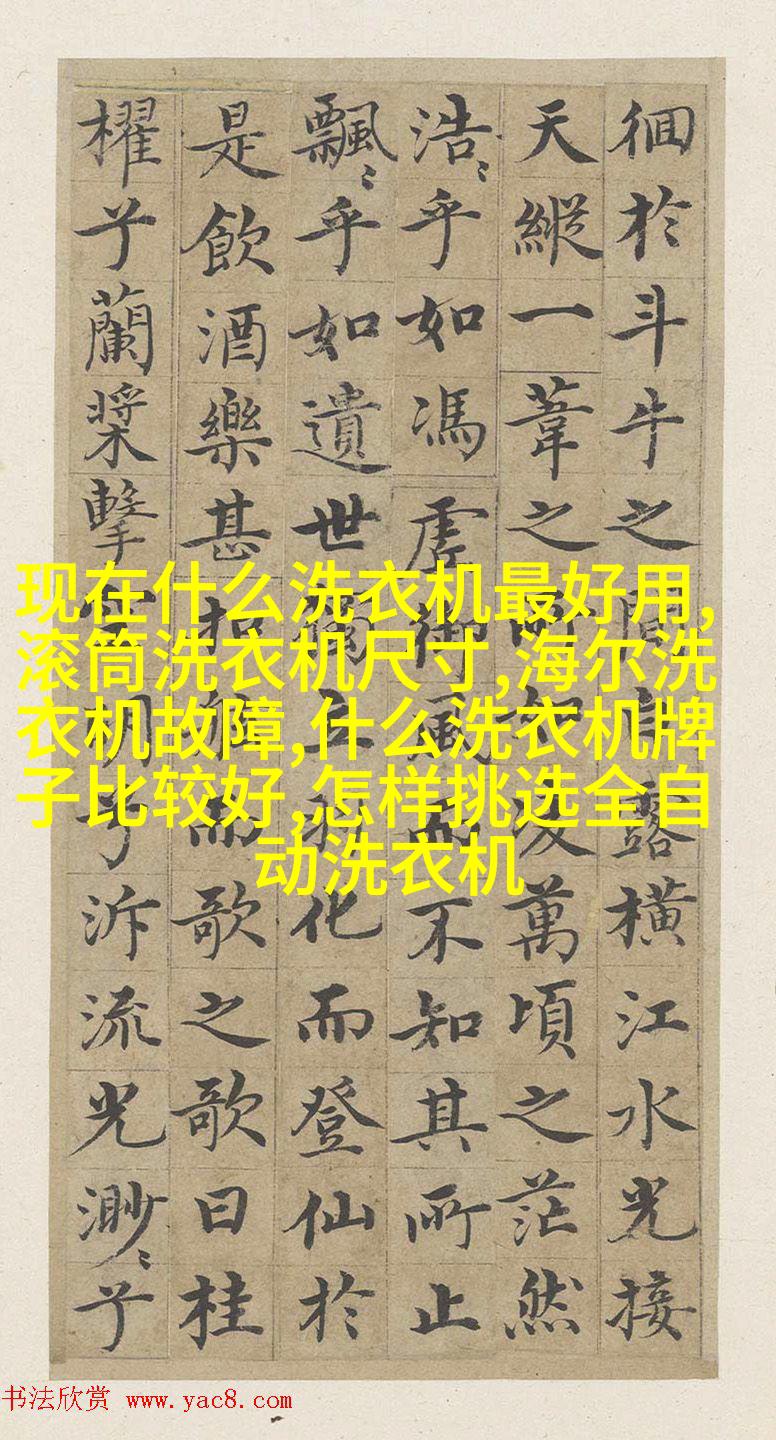 徊於斗牛之間白露橫江水光接
天縱一葦之所如凌萬頃之茫然
浩〻乎如馮虛御風而不知其所止
飄〻乎如遺世獨立羽化而登仙於
是飲酒樂甚扣舷而歌之歌曰桂
櫂兮蘭槳擊空明兮泝流光渺〻兮
现在什么洗衣机最好用,
滚筒洗衣机尺寸,海尔洗
衣机故障,什么洗衣机牌
子比较好,怎样挑选全自
动洗衣机
书法欣赏 www.yac8.com